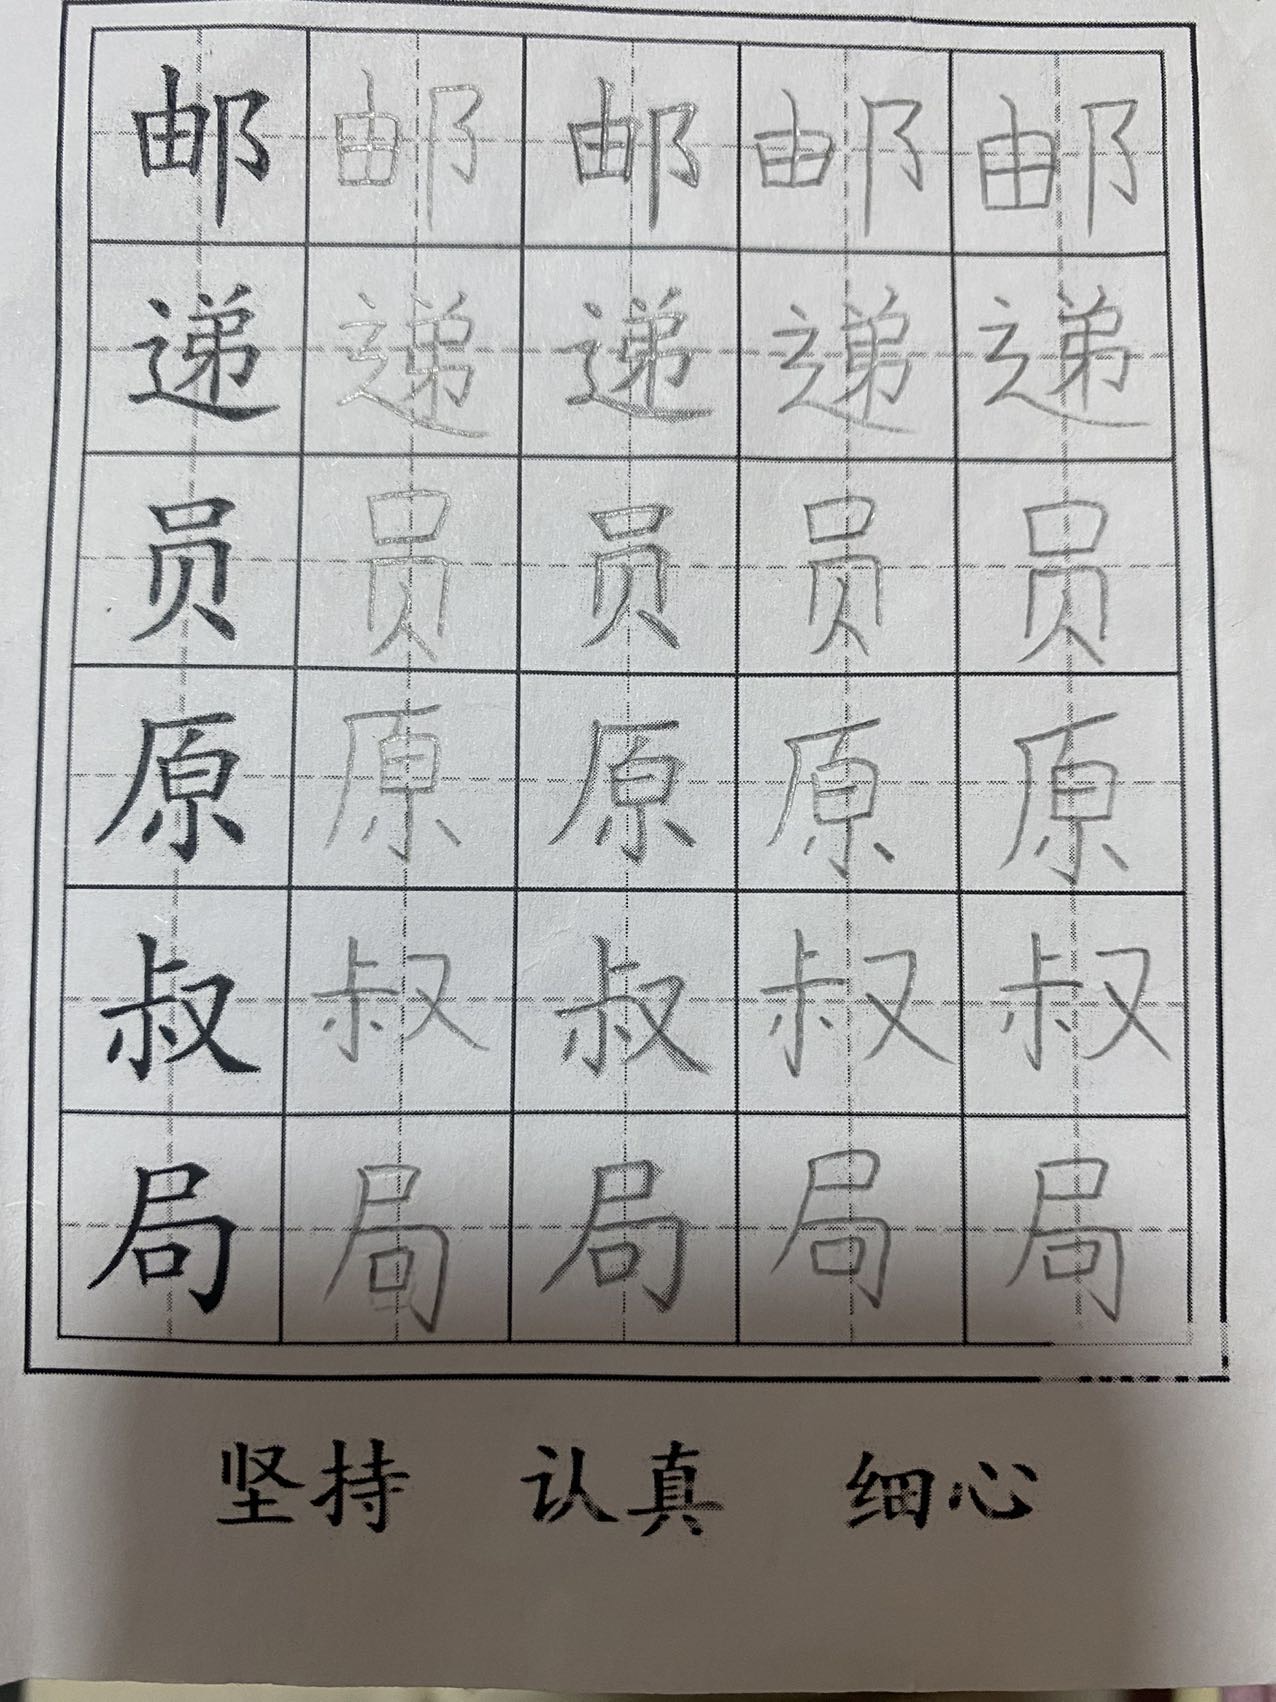 邮 邮 邮 邮 邮
递 递 递 递 递
员 员 员 员 员
原 原 原 原 原
叔 叔 叔 叔 叔
局 局 局 局 局
坚持 认真 细心